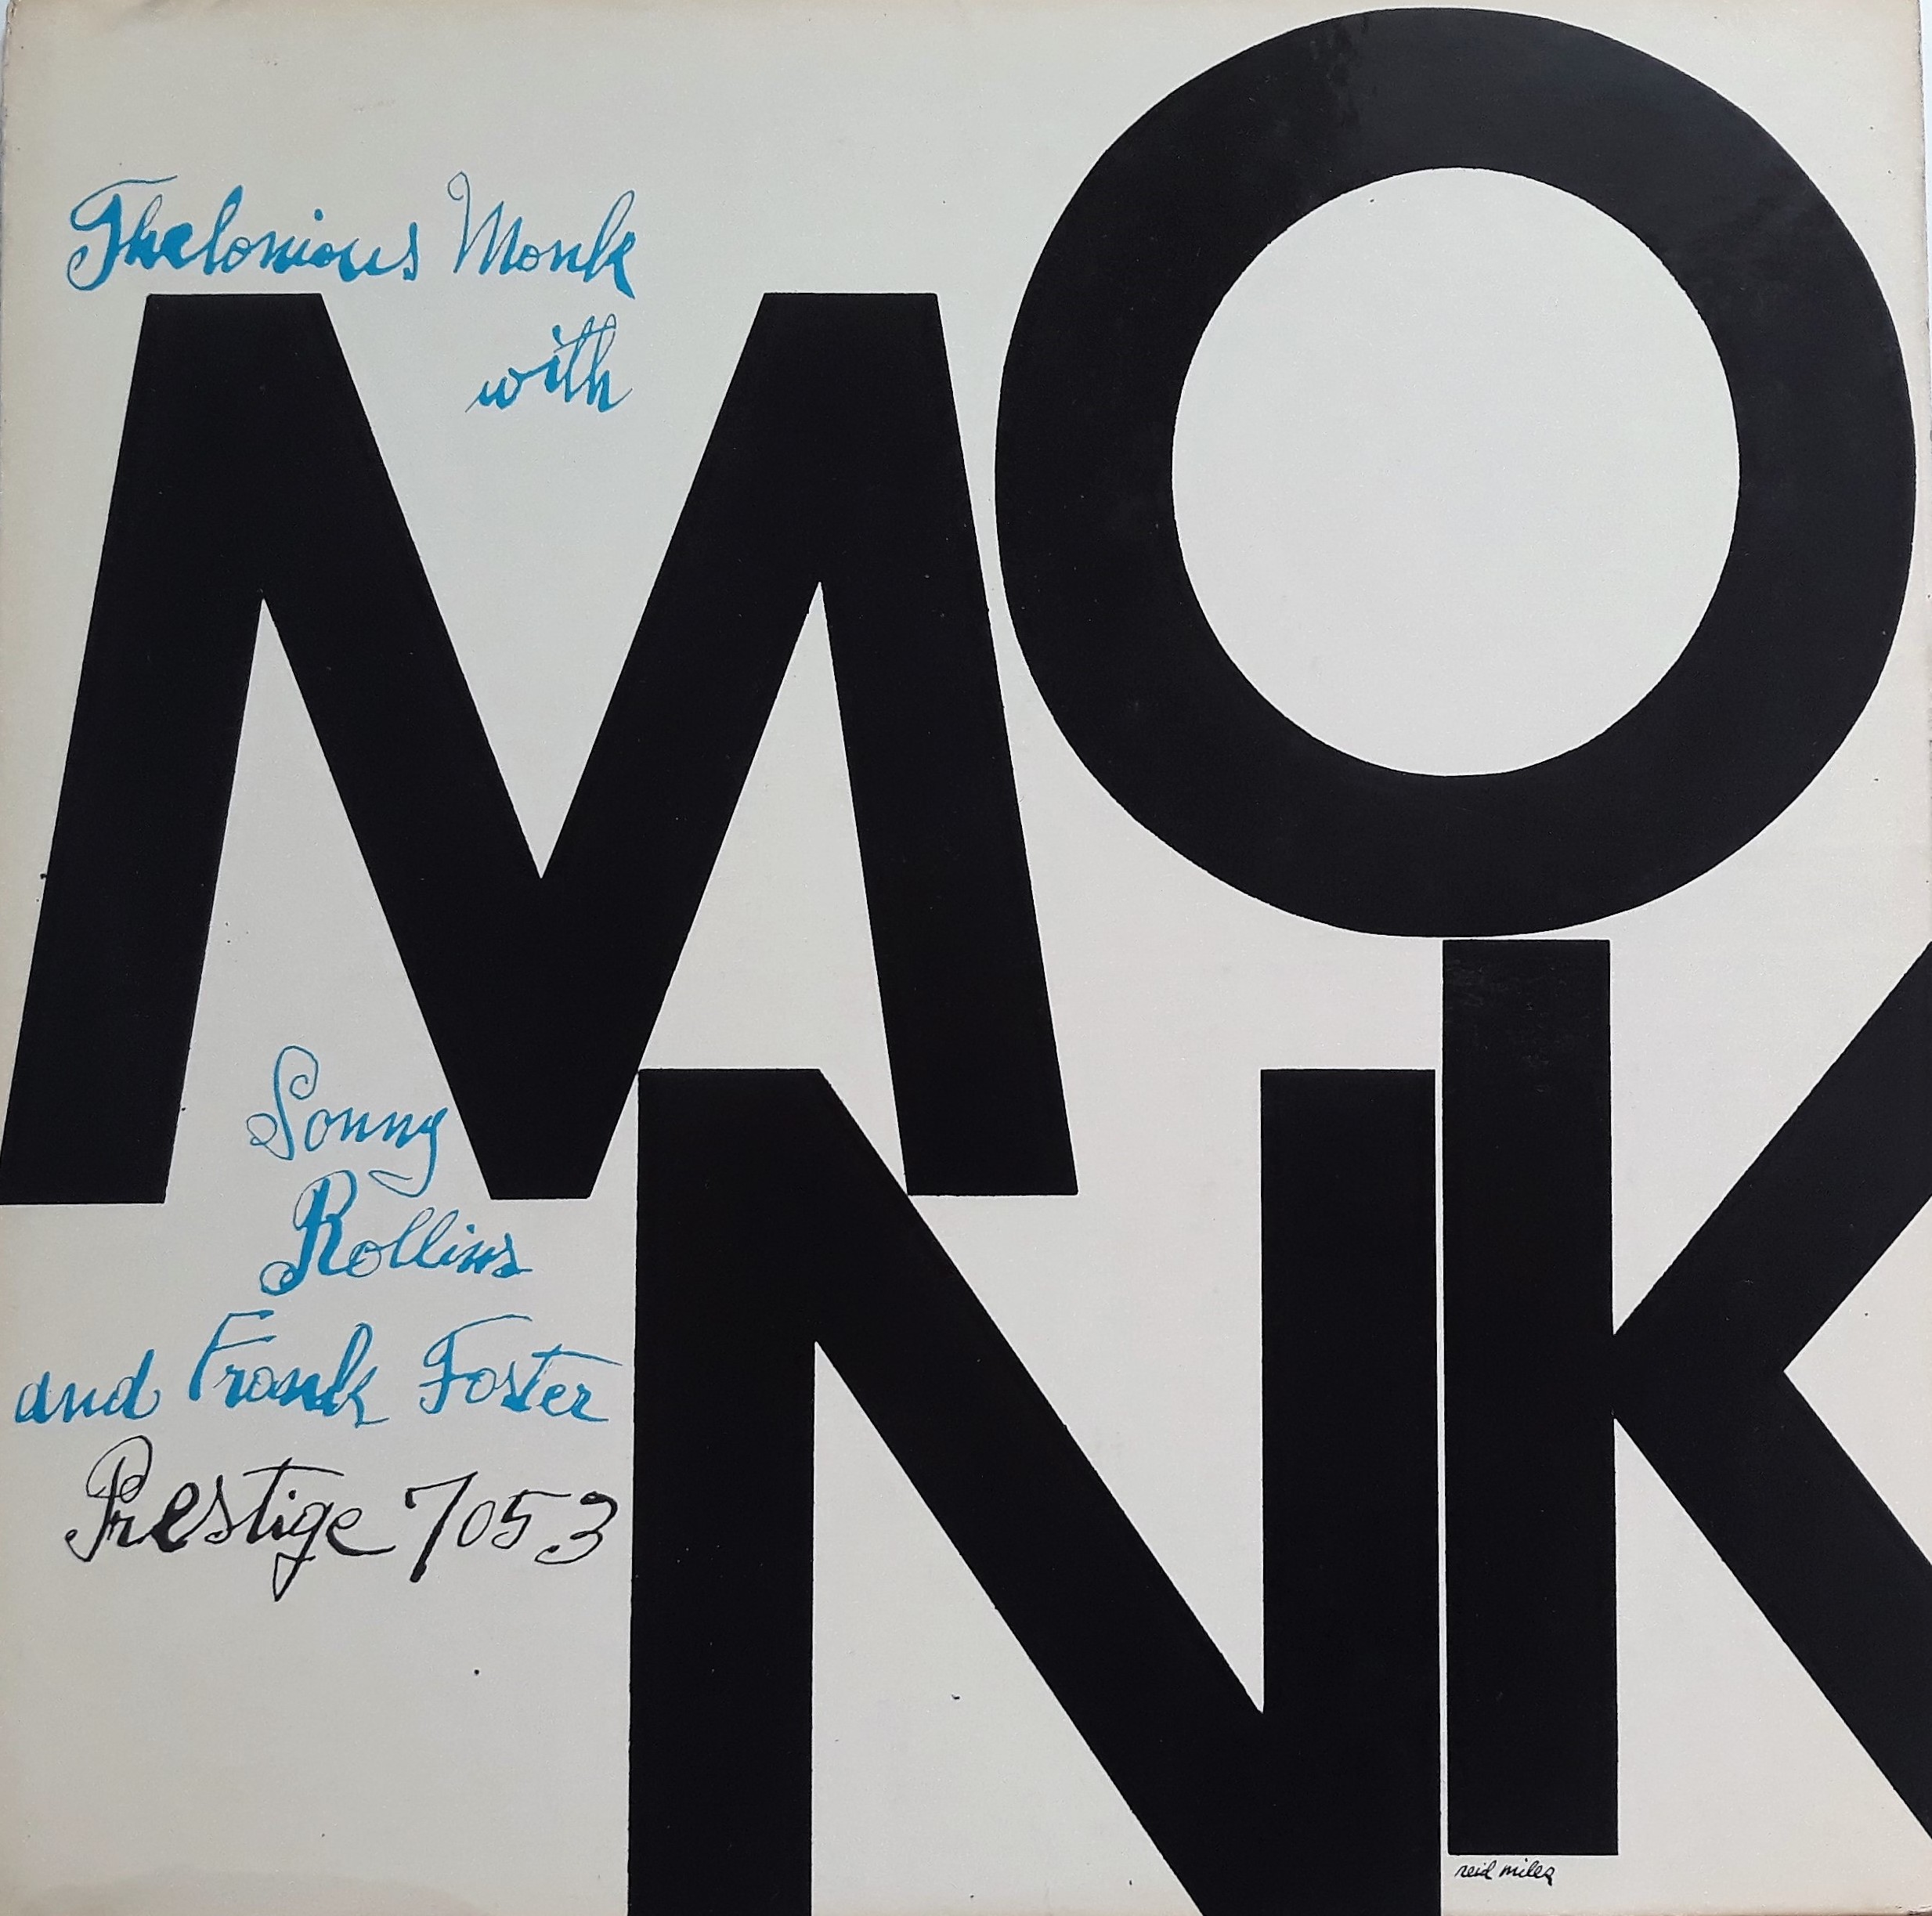 Thelonious Monk
with
MONK
Sonny
Rollins
and Frank Foster
Prestige 7053
reid miles